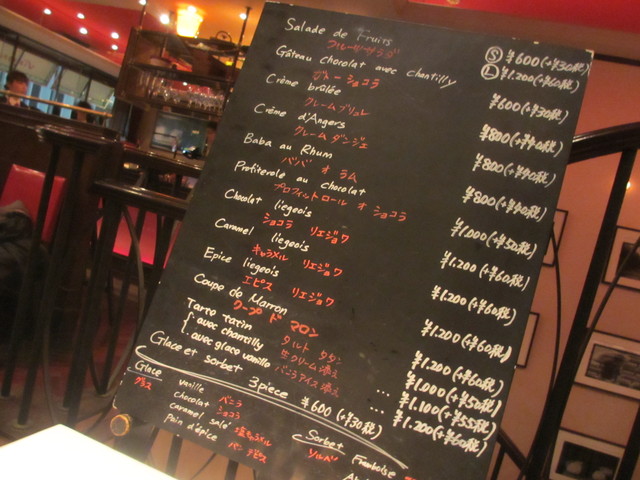 Salade de Fruits Ⓢ ¥600(+¥30税)
フルーツサラダ Ⓛ ¥1.200(+¥60税)
Gâteau chocolat avec chantilly ¥600(+¥30税)
ガトーショコラ
Crème brûlée ¥800(+¥40税)
クレームブリュレ
Crème d'Angers ¥800(+¥40税)
クレームダンジェ
Baba au Rhum ¥800(+¥40税)
ババ オ ラム
Profiterole au chocolat ¥1.000(+¥50税)
プロフィットロール オ ショコラ
Chocolat liegeois ¥1.200(+¥60税)
ショコラ リエジョワ
Caramel liegeois ¥1.200(+¥60税)
キャラメル リエジョワ
Epice liegeois ¥1.200(+¥60税)
エピス リエジョワ
Coupe de Marron ¥1.200(+¥60税)
クープ ド マロン
Tarte tatin タルト タタン ... ¥1.000(+¥50税)
avec chantilly 生クリーム添え ... ¥1.100(+¥55税)
avec glace vanille バニラアイス添え ¥1.200(+¥60税)
Glace et sorbet 3piece ¥600(+¥30税)
Glace
グラス
vanille バニラ
chocolat ショコラ
Caramel salé 塩キャラメル
Pain d'épice パン デピス
Sorbet
ソルベ
Framboise